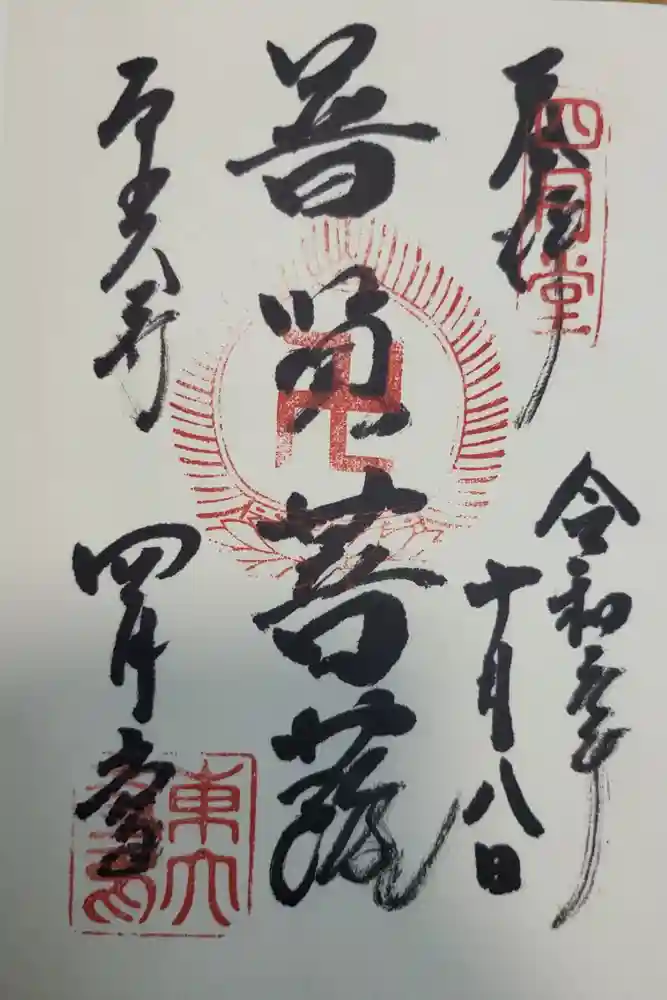 四月堂
奉拝
令和元年
十月八日
普賢菩薩
卍
東大寺
四月堂